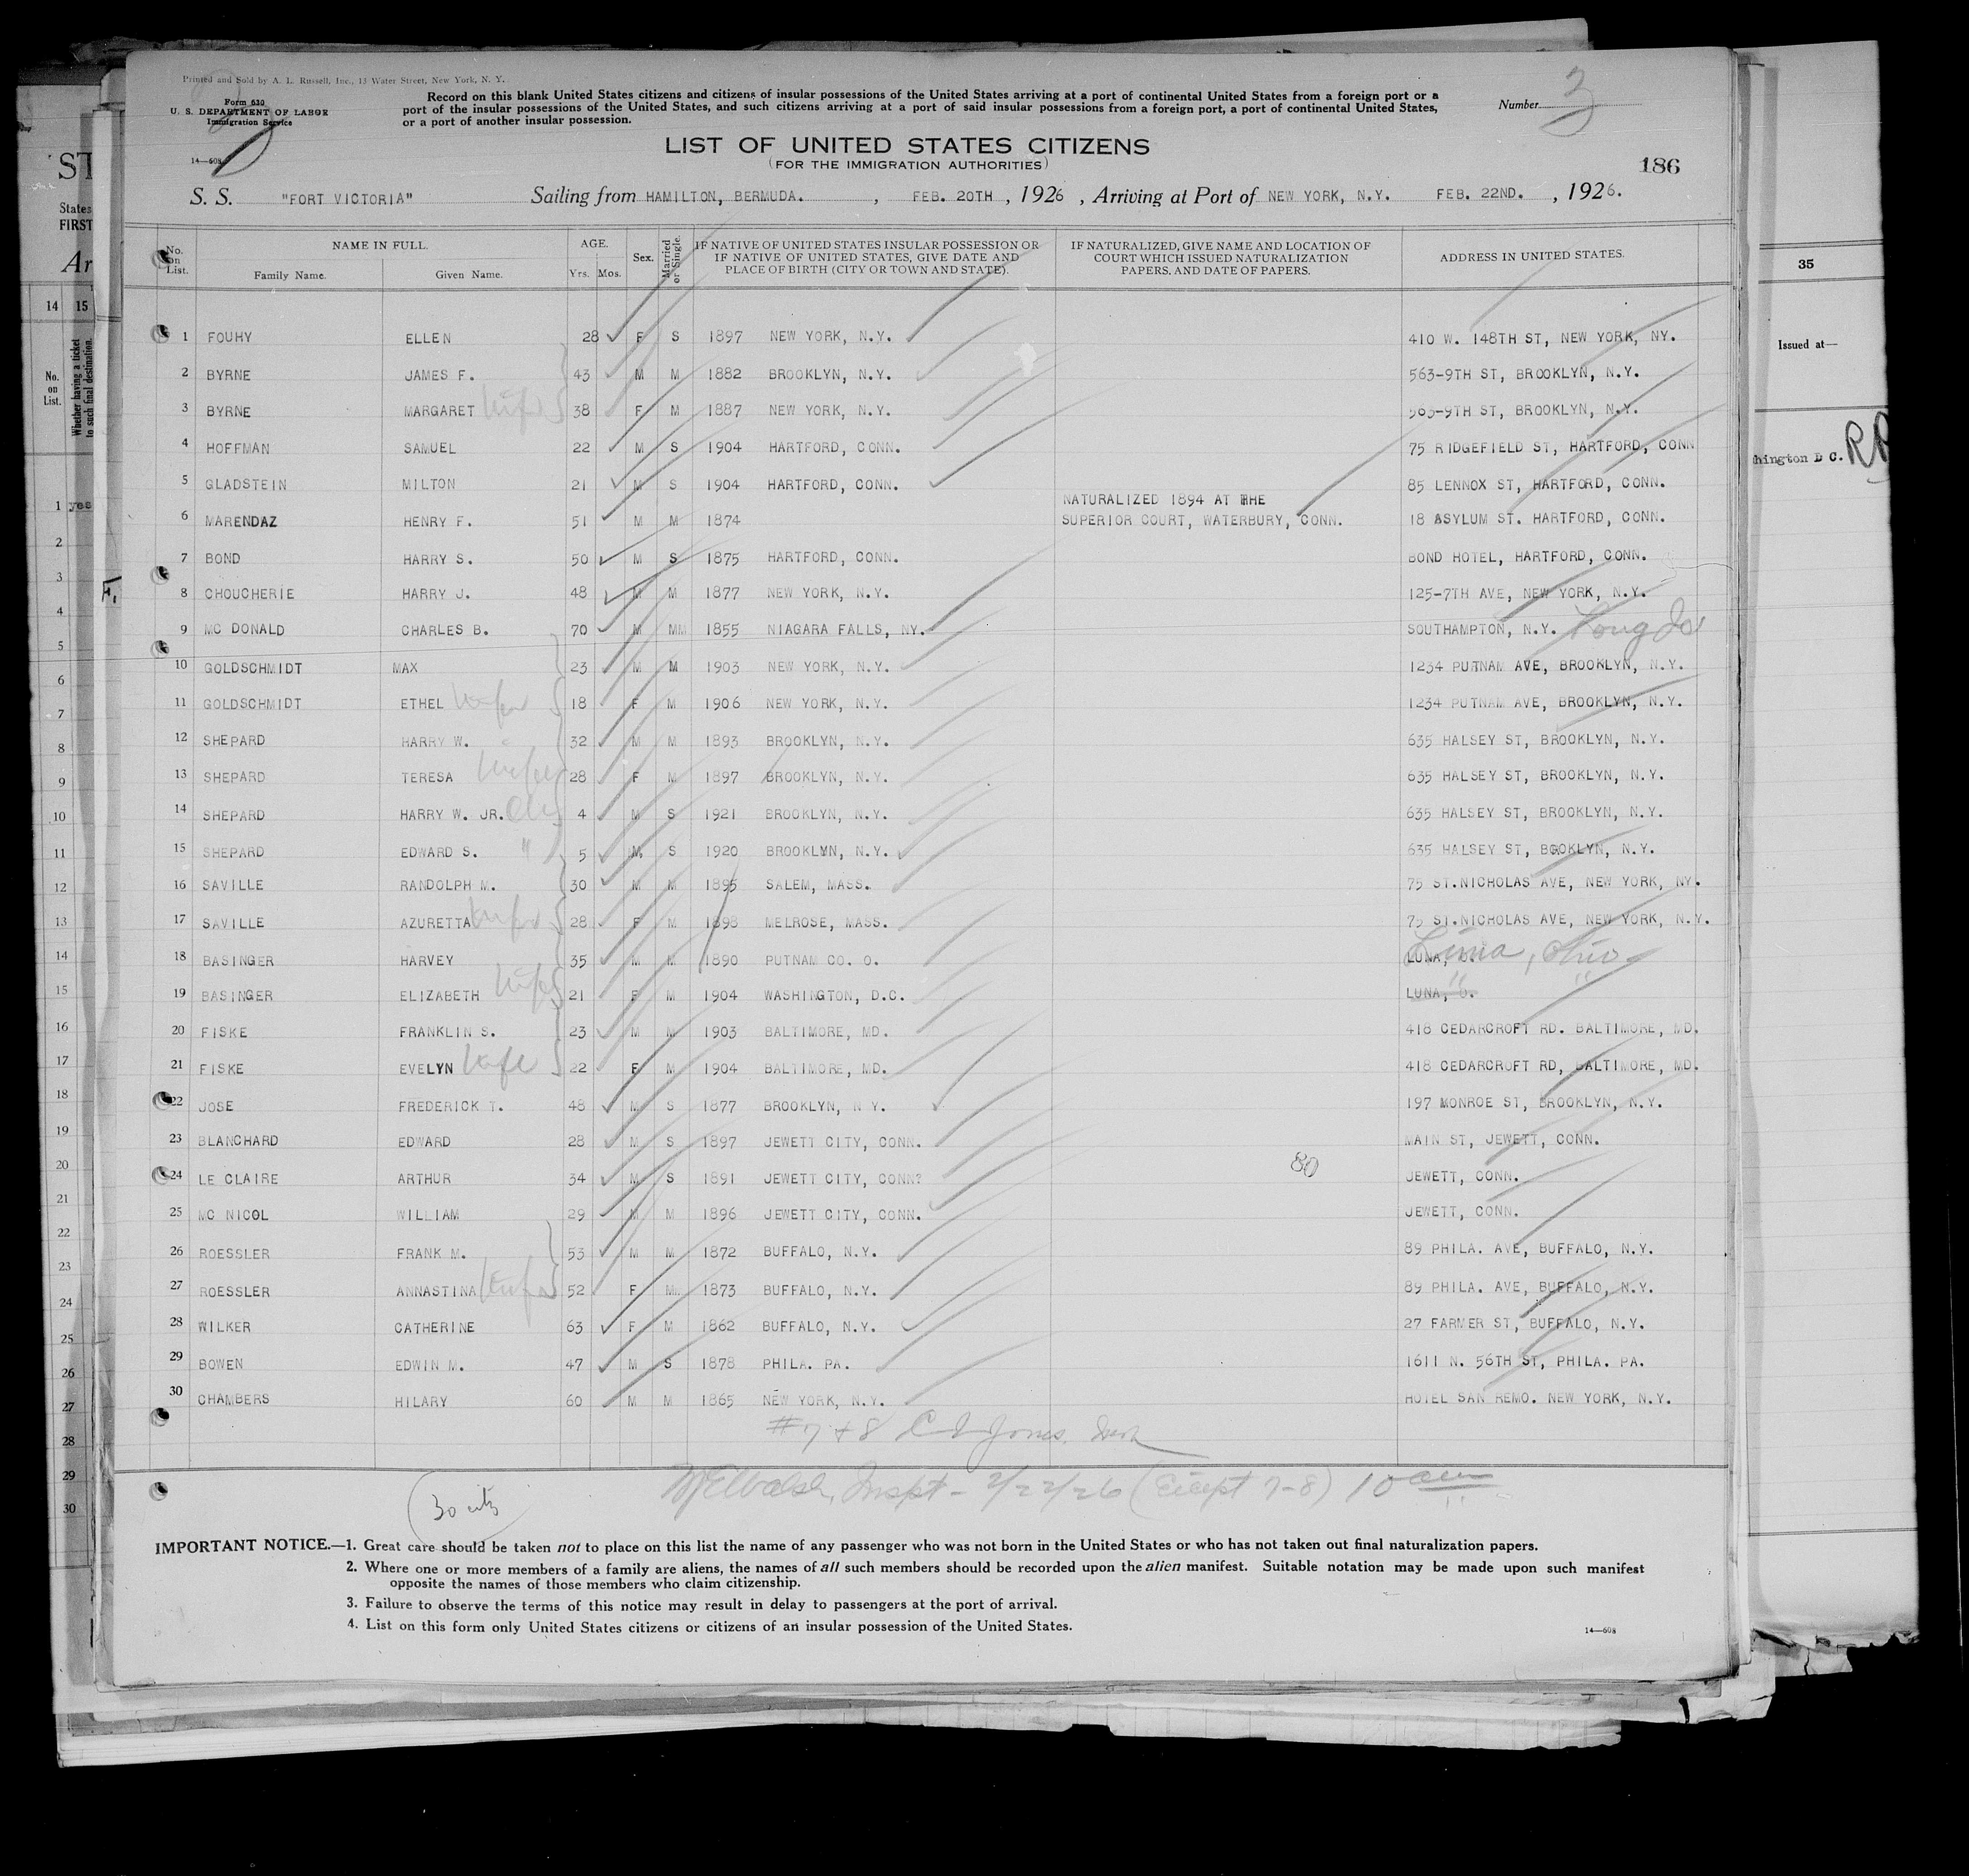 Printed and Sold by A. L. Russell, Inc., 13 Water Street, New York, N. Y.
Form 630
U. S. DEPARTMENT OF LABOR
Immigration Service
14—608
Record on this blank United States citizens and citizens of insular possessions of the United States arriving at a port of continental United States from a foreign port or a
port of the insular possessions of the United States, and such citizens arriving at a port of said insular possessions from a foreign port, a port of continental United States,
or a port of another insular possession.
Number 3
LIST OF UNITED STATES CITIZENS
(FOR THE IMMIGRATION AUTHORITIES)
186
S. S. "FORT VICTORIA" Sailing from HAMILTON, BERMUDA. , FEB. 20TH , 1926 , Arriving at Port of NEW YORK, N.Y. FEB. 22ND. , 1926.
No. on List. NAME IN FULL. Family Name. Given Name. AGE. Yrs. Mos. Sex. Married or Single. IF NATIVE OF UNITED STATES INSULAR POSSESSION OR IF NATIVE OF UNITED STATES, GIVE DATE AND PLACE OF BIRTH (CITY OR TOWN AND STATE). IF NATURALIZED, GIVE NAME AND LOCATION OF COURT WHICH ISSUED NATURALIZATION PAPERS, AND DATE OF PAPERS. ADDRESS IN UNITED STATES.
1 FOUHY ELLEN 28 F S 1897 NEW YORK, N.Y. 410 W. 148TH ST, NEW YORK, NY.
2 BYRNE JAMES F. 43 M M 1882 BROOKLYN, N.Y. 563-9TH ST, BROOKLYN, N.Y.
3 BYRNE MARGARET wife 38 F M 1887 NEW YORK, N.Y. 563-9TH ST, BROOKLYN, N.Y.
4 HOFFMAN SAMUEL 22 M S 1904 HARTFORD, CONN. 75 RIDGEFIELD ST, HARTFORD, CONN
5 GLADSTEIN MILTON 21 M S 1904 HARTFORD, CONN. 85 LENNOX ST, HARTFORD, CONN.
NATURALIZED 1894 AT THE
6 MARENDAZ HENRY F. 51 M M 1874 SUPERIOR COURT, WATERBURY, CONN. 18 ASYLUM ST. HARTFORD, CONN.
7 BOND HARRY S. 50 M S 1875 HARTFORD, CONN. BOND HOTEL, HARTFORD, CONN.
8 CHOUCHERIE HARRY J. 48 M M 1877 NEW YORK, N.Y. 125-7TH AVE, NEW YORK, N.Y.
9 MC DONALD CHARLES B. 70 M MM 1855 NIAGARA FALLS, NY. SOUTHAMPTON, N.Y. Long Isl
10 GOLDSCHMIDT MAX 23 M M 1903 NEW YORK, N.Y. 1234 PUTNAM AVE, BROOKLYN, N.Y.
11 GOLDSCHMIDT ETHEL wife 18 F M 1906 NEW YORK, N.Y. 1234 PUTNAM AVE, BROOKLYN, N.Y.
12 SHEPARD HARRY W. 32 M M 1893 BROOKLYN, N.Y. 635 HALSEY ST, BROOKLYN, N.Y.
13 SHEPARD TERESA wife 28 F M 1897 BROOKLYN, N.Y. 635 HALSEY ST, BROOKLYN, N.Y.
14 SHEPARD HARRY W. JR. 4 M S 1921 BROOKLYN, N.Y. 635 HALSEY ST, BROOKLYN, N.Y.
15 SHEPARD EDWARD S. " 5 M. S 1920 BROOKLYN, N.Y. 635 HALSEY ST, BOOKLYN, N.Y.
16 SAVILLE RANDOLPH M. 30 M M 1895 SALEM, MASS. 75 ST.NICHOLAS AVE, NEW YORK, NY.
17 SAVILLE AZURETTA wife 28 F M 1898 MELROSE, MASS. 75 ST.NICHOLAS AVE, NEW YORK, N.Y.
18 BASINGER HARVEY 35 M M 1890 PUTNAM CO. O. LUNA, Lima, Ohio
19 BASINGER ELIZABETH wife 21 F M 1904 WASHINGTON, D.C. LUNA, O. " "
20 FISKE FRANKLIN S. 23 M M 1903 BALTIMORE, MD. 418 CEDARCROFT RD. BALTIMORE, MD.
21 FISKE EVELYN wife 22 F M 1904 BALTIMORE, MD. 418 CEDARCROFT RD, BALTIMORE, MD.
22 JOSE FREDERICK T. 48 M S 1877 BROOKLYN, N Y. 197 MONROE ST, BROOKLYN, N.Y.
23 BLANCHARD EDWARD 28 M S 1897 JEWETT CITY, CONN. MAIN ST, JEWETT, CONN.
80
24 LE CLAIRE ARTHUR 34 M S 1891 JEWETT CITY, CONN? JEWETT, CONN.
25 MC NICOL WILLIAM 29 M M 1896 JEWETT CITY, CONN. JEWETT, CONN.
26 ROESSLER FRANK M. 53 M M 1872 BUFFALO, N.Y. 89 PHILA. AVE, BUFFALO, N.Y.
27 ROESSLER ANNASTINA wife 52 F M. 1873 BUFFALO, N.Y. 89 PHILA. AVE, BUFFALO, N.Y.
28 WILKER CATHERINE 63 F M 1862 BUFFALO, N.Y. 27 FARMER ST, BUFFALO, N.Y.
29 BOWEN EDWIN M. 47 M S 1878 PHILA. PA. 1611 N. 56TH ST, PHILA. PA.
30 CHAMBERS HILARY 60 M M 1865 NEW YORK, N.Y. HOTEL SAN REMO. NEW YORK, N.Y.
#7+8 Jones
Inspt - 2/22/26 (Except 7-8) 10 am
30 cits
IMPORTANT NOTICE.—1. Great care should be taken not to place on this list the name of any passenger who was not born in the United States or who has not taken out final naturalization papers.
2. Where one or more members of a family are aliens, the names of all such members should be recorded upon the alien manifest. Suitable notation may be made upon such manifest
opposite the names of those members who claim citizenship.
3. Failure to observe the terms of this notice may result in delay to passengers at the port of arrival.
4. List on this form only United States citizens or citizens of an insular possession of the United States.
14—608
ST
States
FIRST
Ar
14 15
No. on List.
Whether having a ticket to such final destination.
1 yes
2
3
4
5
6
7
8
9
10
11
12
13
14
15
16
17
18
19
20
21
22
23
24
25
26
27
28
29
30
F,
35
Issued at—
hington D C.